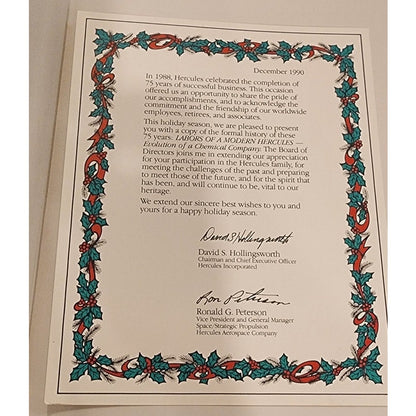 December 1990
In 1988, Hercules celebrated the completion of
75 years of successful business. This occasion
offered us an opportunity to share the pride of
our accomplishments, and to acknowledge the
commitment and the friendship of our worldwide
employees, retirees, and associates.
This holiday season, we are pleased to present
you with a copy of the formal history of these
75 years: LABORS OF A MODERN HERCULES —
Evolution of a Chemical Company. The Board of
Directors joins me in extending our appreciation
for your participation in the Hercules family, for
meeting the challenges of the past and preparing
to meet those of the future, and for the spirit that
has been, and will continue to be, vital to our
heritage.
We extend our sincere best wishes to you and
yours for a happy holiday season.
David S Hollingsworth
David S. Hollingsworth
Chairman and Chief Executive Officer
Hercules Incorporated
Ron Peterson
Ronald G. Peterson
Vice President and General Manager
Space/Strategic Propulsion
Hercules Aerospace Company